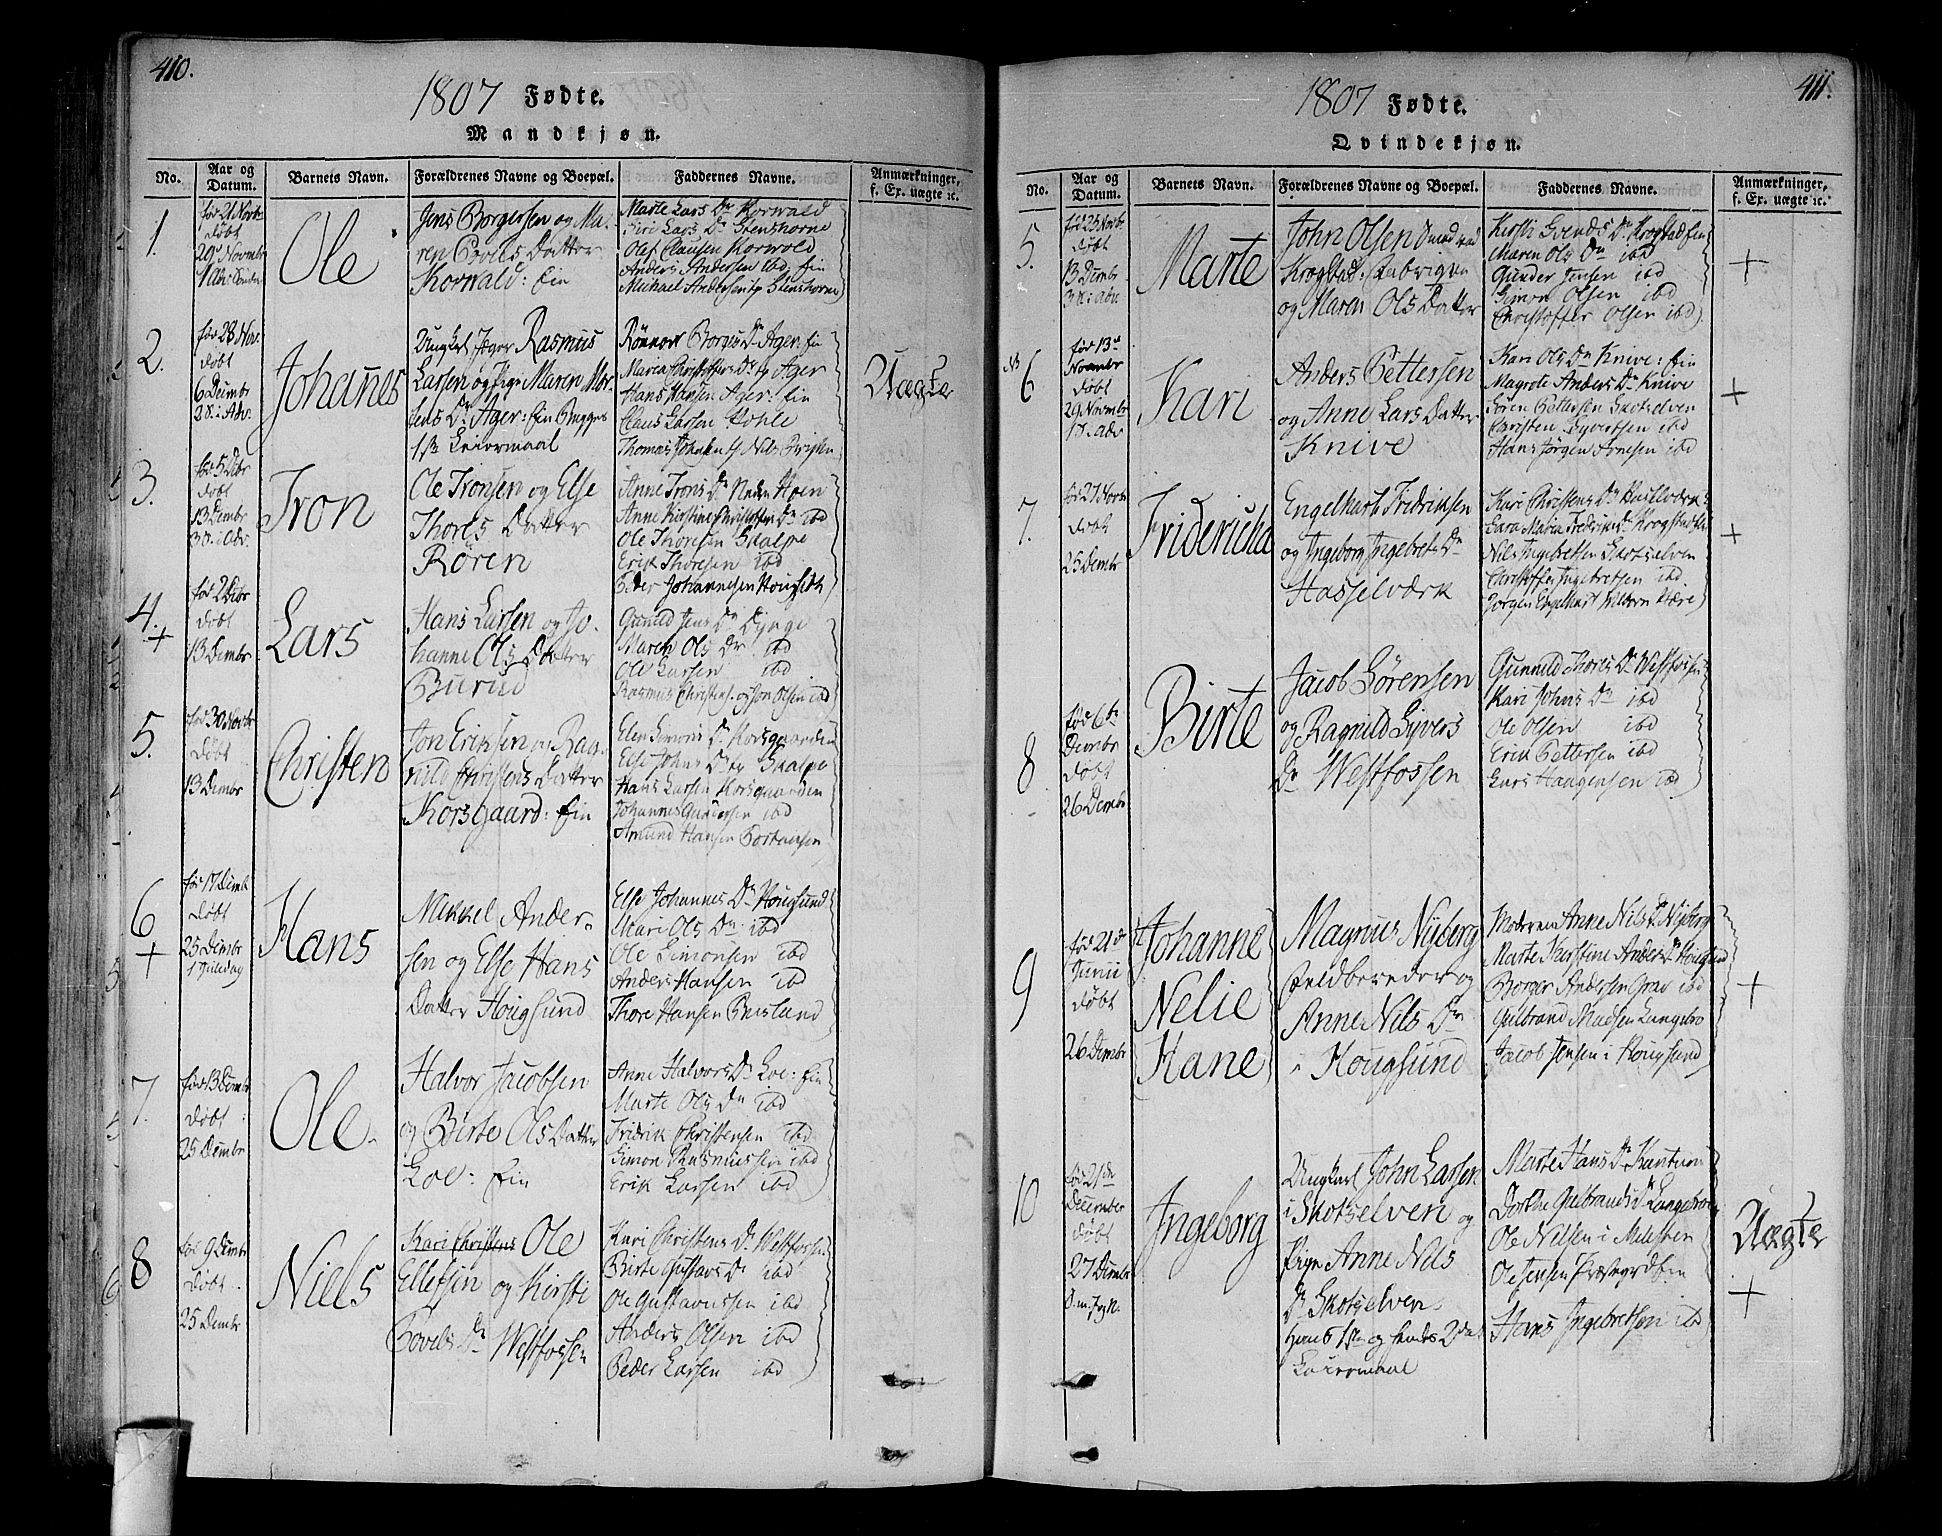 410.
1807 Fødte.
Mandkjøn.
No.
Aar og Datum.
Barnets Navn.
Forældrenes Navne og Boepæl.
Faddernes Navne.
Anmærkninger, f. Ex. uægte ic.
1.
fød 21 Novbr
døbt
29de Novembr
Ole
Jens Borgersen og Ma-
ren Povels Datter
Korwald: Ein
Marte Lars Dr Korwald
Siri Lars Dr Stenshorne
Olef Clausen Korwold
Anders Andersen ibd. Ein
Michael Andersen Stenshorne
2.
fød 28 Nov.
døbt
6 Decmbr
2 S. i Adv.
Johannes
Ungkel Jeger Rasmus
Larsen og Pige Maren Mor-
tens Dr Ager: Ein Begges
1ste Leiermaal
Rønnov Borges Dr Ager: Ein
Maria Christoffers Dr Ager
Hans Hansen Ager: Ein
Claus Larsen Hohle
Uægte
3.
fød 5 Dcbr
døbt
13 Decmbr
3 S. i Adv.
Tron
Ole Tronsen og Else
Thores Datter
Røren
Anne Trons Dr Neden Hoen
Anne Kirstine Christoffer Dr ibd
Ole Thoresen Skalpe
Erik Thoresen ibd
Peder Johannesen Hougsuth
4.
+
fød 2 Dcbr
døbt
13 Decmbr
Lars
Hans Larsen og Jo-
hanne Ols Datter
Burud
Gunnild Jens Dr Dynge
Maren Ols Dr ibd
Ole Larsen ibd
Rasmus Christens. og Jon Olsen ibd
5.
fød 30 Novbr
døbt
13 Decmbr
Christen
Jon Eriksen og Rag-
nild Christens Datter
Korsgaard: Ein
Elen Simons Dr Korsgaarden
Else Johns Dr Skalpe
Hans Larsen Korsgaarden
Johannes Gundersen ibd
Amund Hansen
6
+
fød 17 Decmb
døbt
25 Decmbr
1 Juledag
Hans
Mikkel Ander-
sen og Else Hans
Datter Hougsund
Else Johannes Dr Hougsund
Mari Ols Dr ibd
Ole Simonsen ibd
Anders Hansen ibd
Thore Hansen
7.
fød 13 Decmbr
døbt
25 Decmbr
Ole
Halvor Jacobsen
og Birte Ols Datter
Loe: Ein
Anne Halvors Dr Loe: Ein
Marte Ols Dr ibd
Fridrik Christensen ibd
Simon Rasmussen ibd
Erik Larsen ibd
8
fød 9 Decmbr
døbt
25 Decmbr
Niels
Kari Christens Ole
Ellefsen og Kirsti
Povels Dr Westfossen
Kari Christens Dr Westfossen
Birte Gustavs Dr ibd
Ole Gustavussen ibd
Anders Olsen ibd
Peder Larsen ibd
411.
1807 Fødte.
Qvindekjøn.
No.
Aar og Datum.
Barnets Navn.
Forældrenes Navne og Boepæl.
Faddernes Navne.
Anmærkninger, f. Ex. uægte ic.
5.
fød 25 Novbr
døbt
13 Decmbr
3 S. i Adv.
Marte
John Olsen Smed ved
Krogstad Fabrique
og Maren Ols Datter
Kirsti Svends Dr Krogstad Ein
Maren Ols Dr ibd
Gunder Jensen ibd
Simon Olsen ibd
Christoffer Olsen ibd
+
NB
6
fød 13de
Novembr
døbt
29 Novmbr
1 S. i Adv
Kari
Anders Pettersen
og Anne Lars Datter
Knive
Kari Ols Dr Knive: Ein
Magrete Anders Dr Knive
Søren Pettersen Skotselven
Carsten Syvertsen ibd
Hans Jørgen Arnesen ibd
+
7.
fød 27 Novbr
døbt
25 Decmbr
Fridericha
Engelhart Fredriksen
og Ingeborg Ingebrets Dr
Hasselværk
Kari Christens Dr Hasselværk
Sara Maria Frederiks Dr Krogstad
Nils Ingebretsen Skotselven
Christoffer Ingebretsen ibd.
Jørgen Engelhart
+
8
fød 6te
Decmbr
døbt
26 Decmbr
Birte
Jacob Sørensen
og Ragnild Syvers
Dr Westfossen
Gunnild Thores Dr Westfossen
Kari Johns Dr ibd
Ole Olsen ibd
Erik Pettersen ibd
Lars Haagensen ibd
9
fød 21de
Junii
døbt
26 Decmbr
Johanne
Nelie
Hane
Magnus Nyborg
Feldbereder og
Anne Nils Dr
Hougsund
Moderen Anne Nils Dr Nyborg
Marte Kirstine Anders Dr Hougsund
Borger Andersen Grav ibd
Gulbrand Madsen Langebro
Jacob Jensen i Hougsund
+
10
fød 21de
December
døbt
27 Decmbr
Ingeborg
Ungkarl John Larsen
i Skotselven og
Pige Anne Nils
Dr Skotselven.
Hans 1ste og hendes 2det
Leiermaal
Marte Hans Dr
Dorthe Gulbrands Dr Langebroe
Ole Nilsen i Millesteen
Ole Jensen
Hans Ingebretsen ibd
Uægte
+